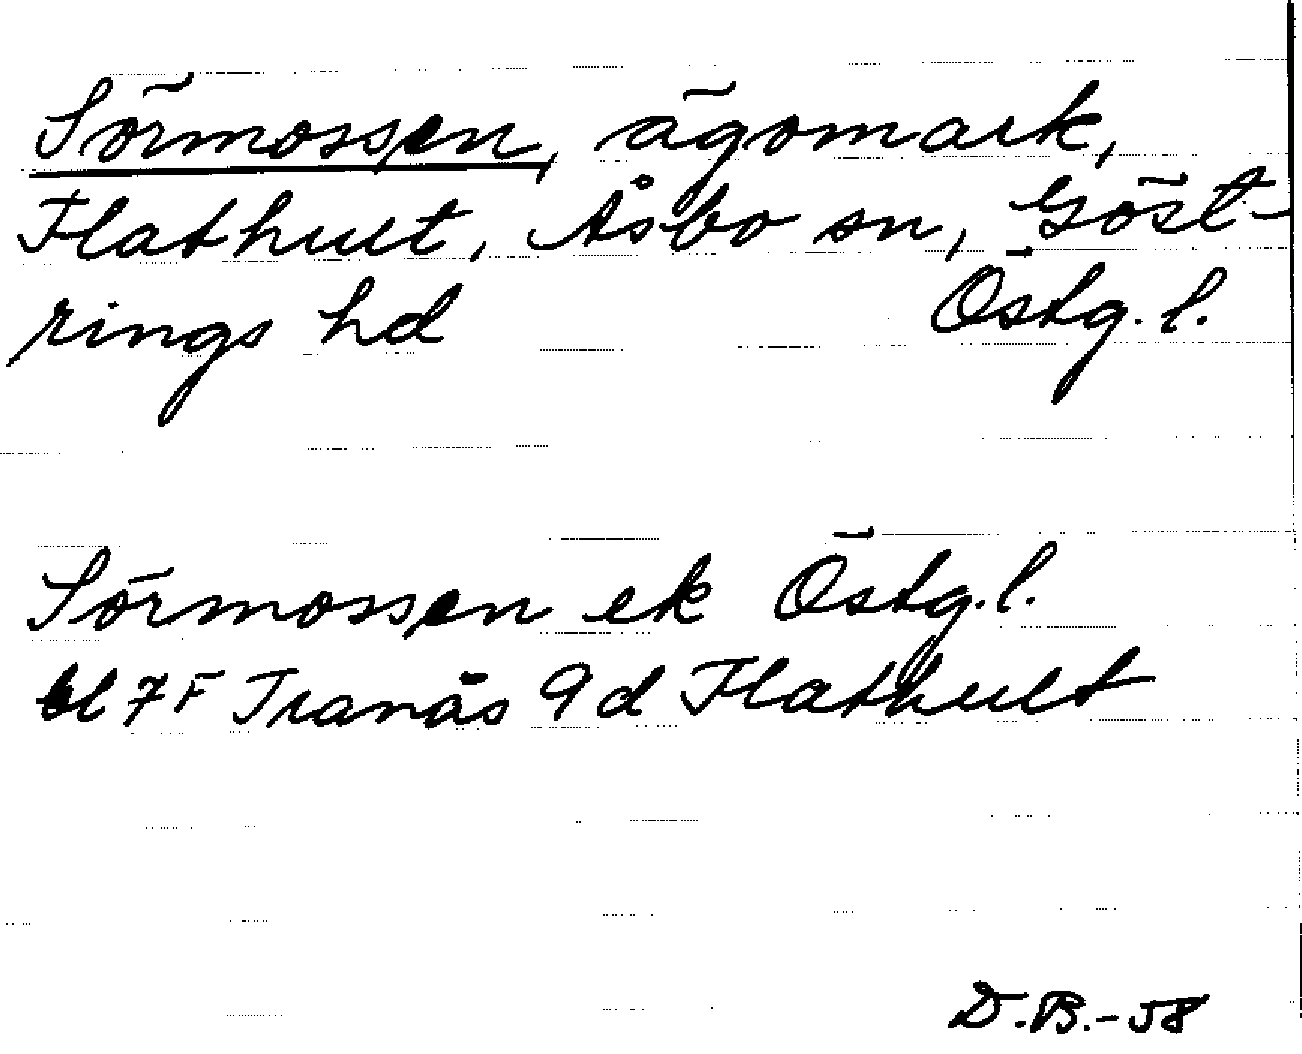 Sörmossen, ägomark,
Flathult, Åsbo sn, Göst-
rings hd Östg. l.
Sörmossen ek Östg. l.
bl 7F Tranås 9d Flathult
D.B.-58